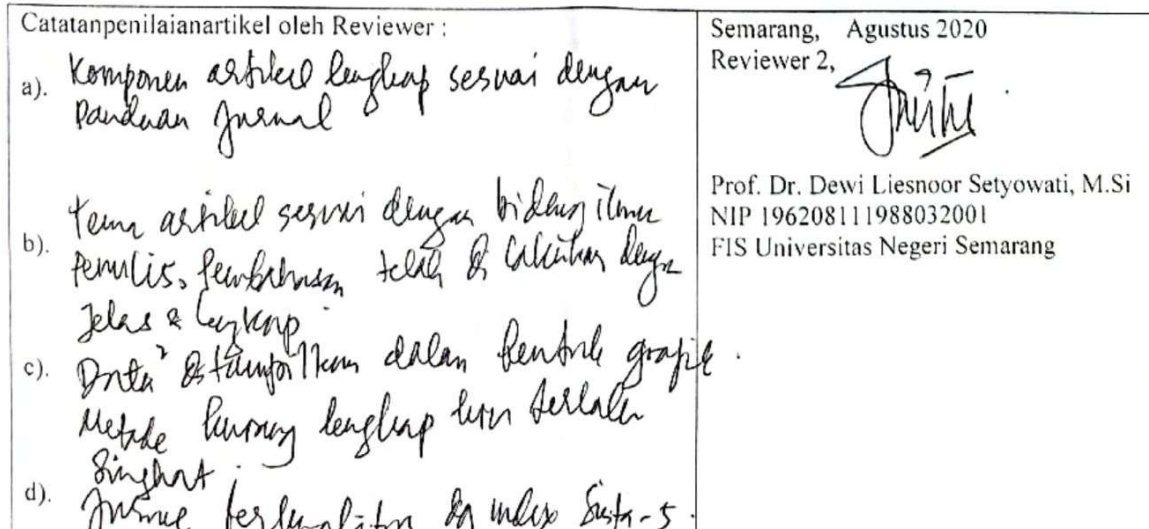 Catatanpenilaianartikel oleh Reviewer :
a). Komponen artikel lengkap sesuai dengan
Panduan Jurnal
b). Tema artikel sesuai dengan bidang ilmu
Penulis, Pembahasan telah di lakukan dengan
Jelas & lengkap.
c). Data² ditampilkan dalam bentuk grafik.
Metode kurang lengkap krn terlalu
Singkat.
d). Jurnal dg index Sinta-5.
Semarang, Agustus 2020
Reviewer 2,
Prof. Dr. Dewi Liesnoor Setyowati, M.Si
NIP 196208111988032001
FIS Universitas Negeri Semarang